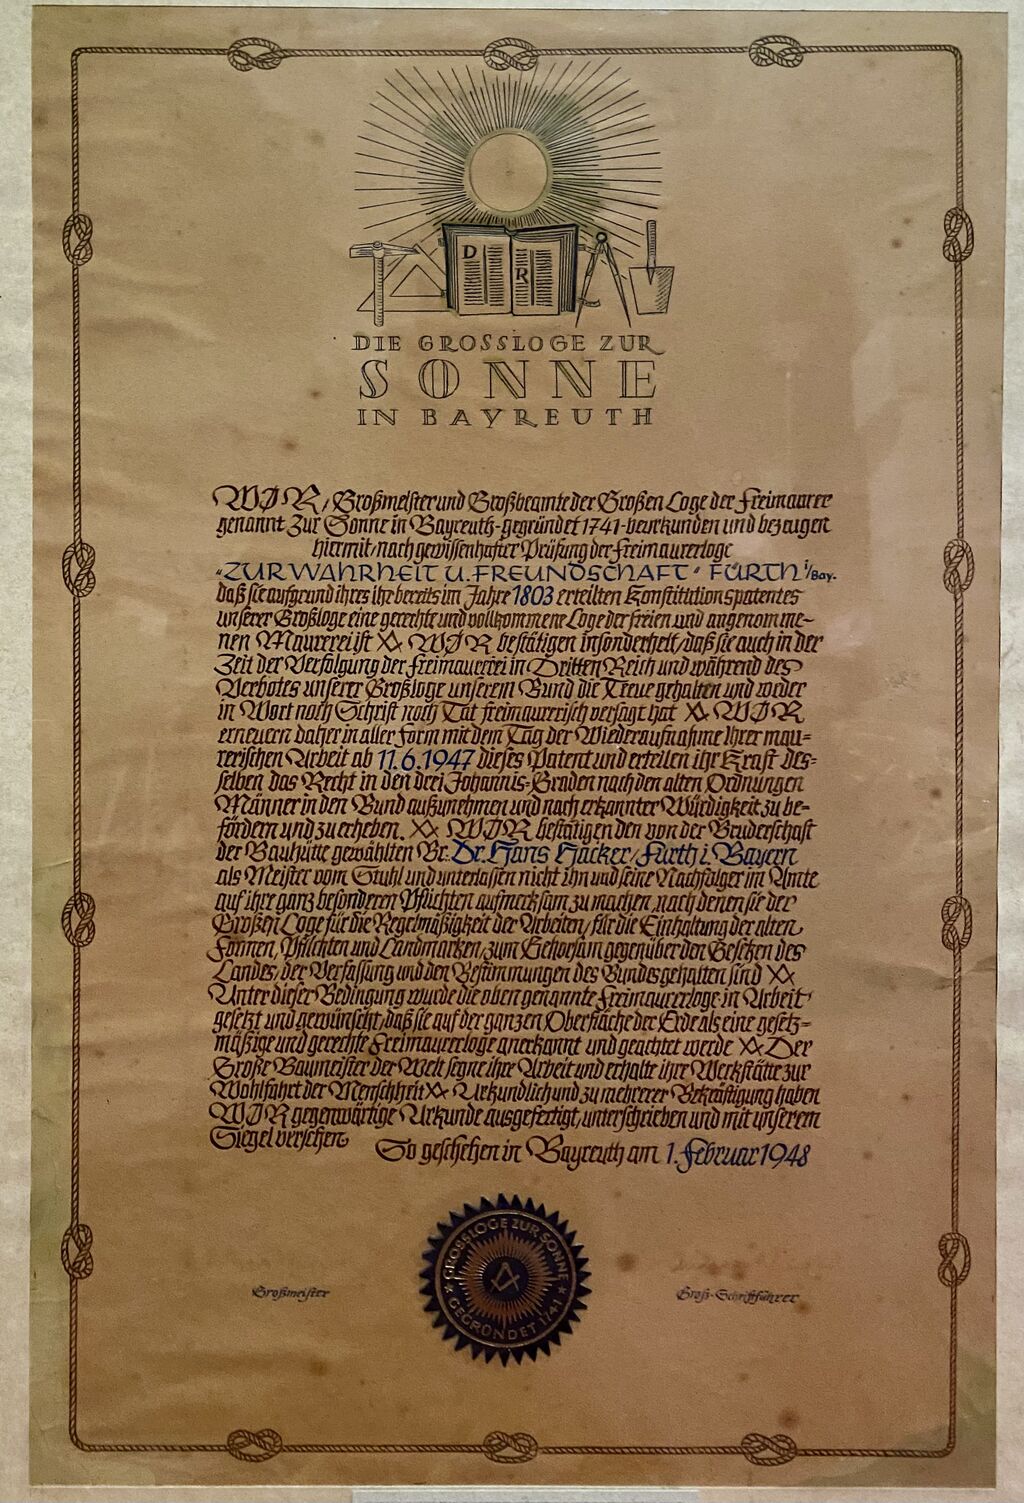 D
R
DIE GROSSLOGE ZUR
SONNE
IN BAYREUTH
WIR, Großmeister und Großbeamte der Großen Loge der Freimaurer
genannt Zur Sonne in Bayreuth-gegründet 1741-beurkunden und bezeugen
hiermit, nach gewissenhafter Prüfung der Freimaurerloge
"ZUR WAHRHEIT U. FREUNDSCHAFT" FÜRTH i/Bay.
daß sie aufgrund ihres ihr bereits im Jahre 1803 erteilten Konstitutionspatentes
unserer Großloge eine gerechte und vollkommene Loge der freien und angenomme-
nen Maurerei ist XX WIR bestätigen insonderheit, daß sie auch in der
Zeit der Verfolgung der Freimaurerei im Dritten Reich und während des
Verbotes unserer Großloge unserem Bund die Treue gehalten und weder
in Wort noch Schrift noch Tat freimaurerisch versagt hat XX WIR
erneuern daher in aller Form mit dem Tag der Wiederaufnahme Ihrer mau-
rerischen Arbeit ab 11.6.1947 dieses Patent und erteilen ihr Kraft des-
selben das Recht in den drei Johannis-Graden nach den alten Ordnungen
Männer in den Bund aufzunehmen und nach erkannter Würdigkeit zu be-
fördern und zu erheben. XX WIR bestätigen den von der Bruderschaft
der Bauhütte gewählten Br. Dr. Hans Hacker, Fürth i. Bayern
als Meister vom Stuhl und unterlassen nicht ihn und seine Nachfolger im Amte
auf ihre ganz besonderen Pflichten aufmerksam zu machen, nach denen sie der
Großen Loge für die Regelmäßigkeit der Arbeiten, für die Einhaltung der alten
Formen, Pflichten und Landmarken, zum Gehorsam gegenüber den Gesetzen des
Landes, der Verfassung und den Bestimmungen des Bundes gehalten sind XX
Unter dieser Bedingung wurde die oben genannte Freimaurerloge in Arbeit
gesetzt und gewünscht, daß sie auf der ganzen Oberfläche der Erde als eine gesetz-
mäßige und gerechte Freimaurerloge anerkannt und geachtet werde XX Der
Große Baumeister der Welt segne ihre Arbeit und erhalte ihre Werkstätte zur
Wohlfahrt der Menschheit XX Urkundlich und zu mehrerer Bekräftigung haben
WIR gegenwärtige Urkunde ausgefertigt, unterschrieben und mit unserem
Siegel versehen
So geschehen in Bayreuth am 1. Februar 1948
GROSSLOGE ZUR SONNE
GEGRÜNDET 1741
Großmeister
Groß-Schriftführer